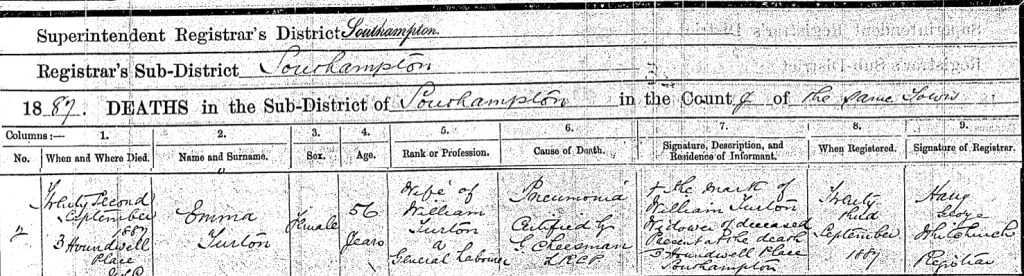 Superintendent Registrar's District Southampton.
Registrar's Sub-District Southampton
1887. DEATHS in the Sub-District of Southampton in the County of the same Town
Columns :— 1. 2. 3. 4. 5. 6. 7. 8. 9.
No. When and Where Died. Name and Surname. Sex. Age. Rank or Profession. Cause of Death. Signature, Description, and Residence of Informant. When Registered. Signature of Registrar.
Twenty Second
September
1887
3 Houndwell
Place
Emma
Turton
Female
56
Years
Wife of
William
Turton
a
General Labourer
Pneumonia
Certified by
G Cheesman
LRCP
X The mark of
William Turton
Widower of deceased
Present at the death
3 Houndwell Place
Southampton
Twenty
third
September
1887
Harry
Whitchurch
Registrar